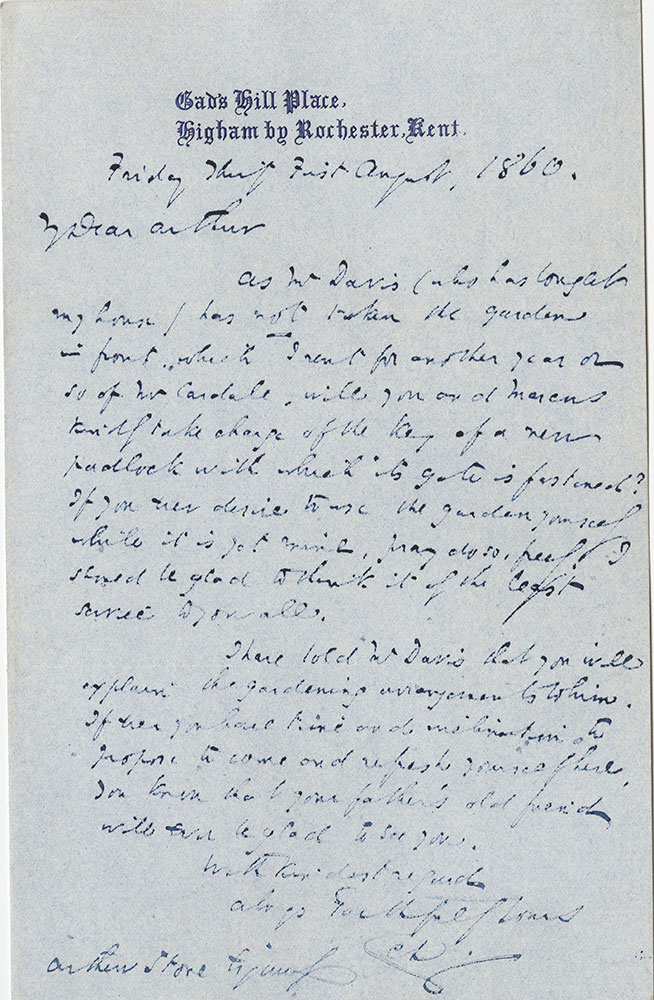 Gad's Hill Place,
Higham by Rochester, Kent.
Friday Thirty First August, 1860.
My Dear Arthur
As Mr Davis (who has bought
my house) has not taken the garden
in front, which I rent for another year or
so of Mr Cardale, will you and Marcus
kindly take charge of the key of a new
padlock with which its gate is fastened?
If you ever desire to use the garden yourself
while it is yet mine, pray do so freely. I
should be glad to think it of the least
service to you all.
I have told Mr Davis that you will
explain the gardening arrangements to him.
If ever you have time and inclination to
propose to come and refresh yourself here,
you know that your father's old friend
will ever be glad to see you.
With kindest regard
always Faithfully Yours
CD.
Arthur Stone Esquire